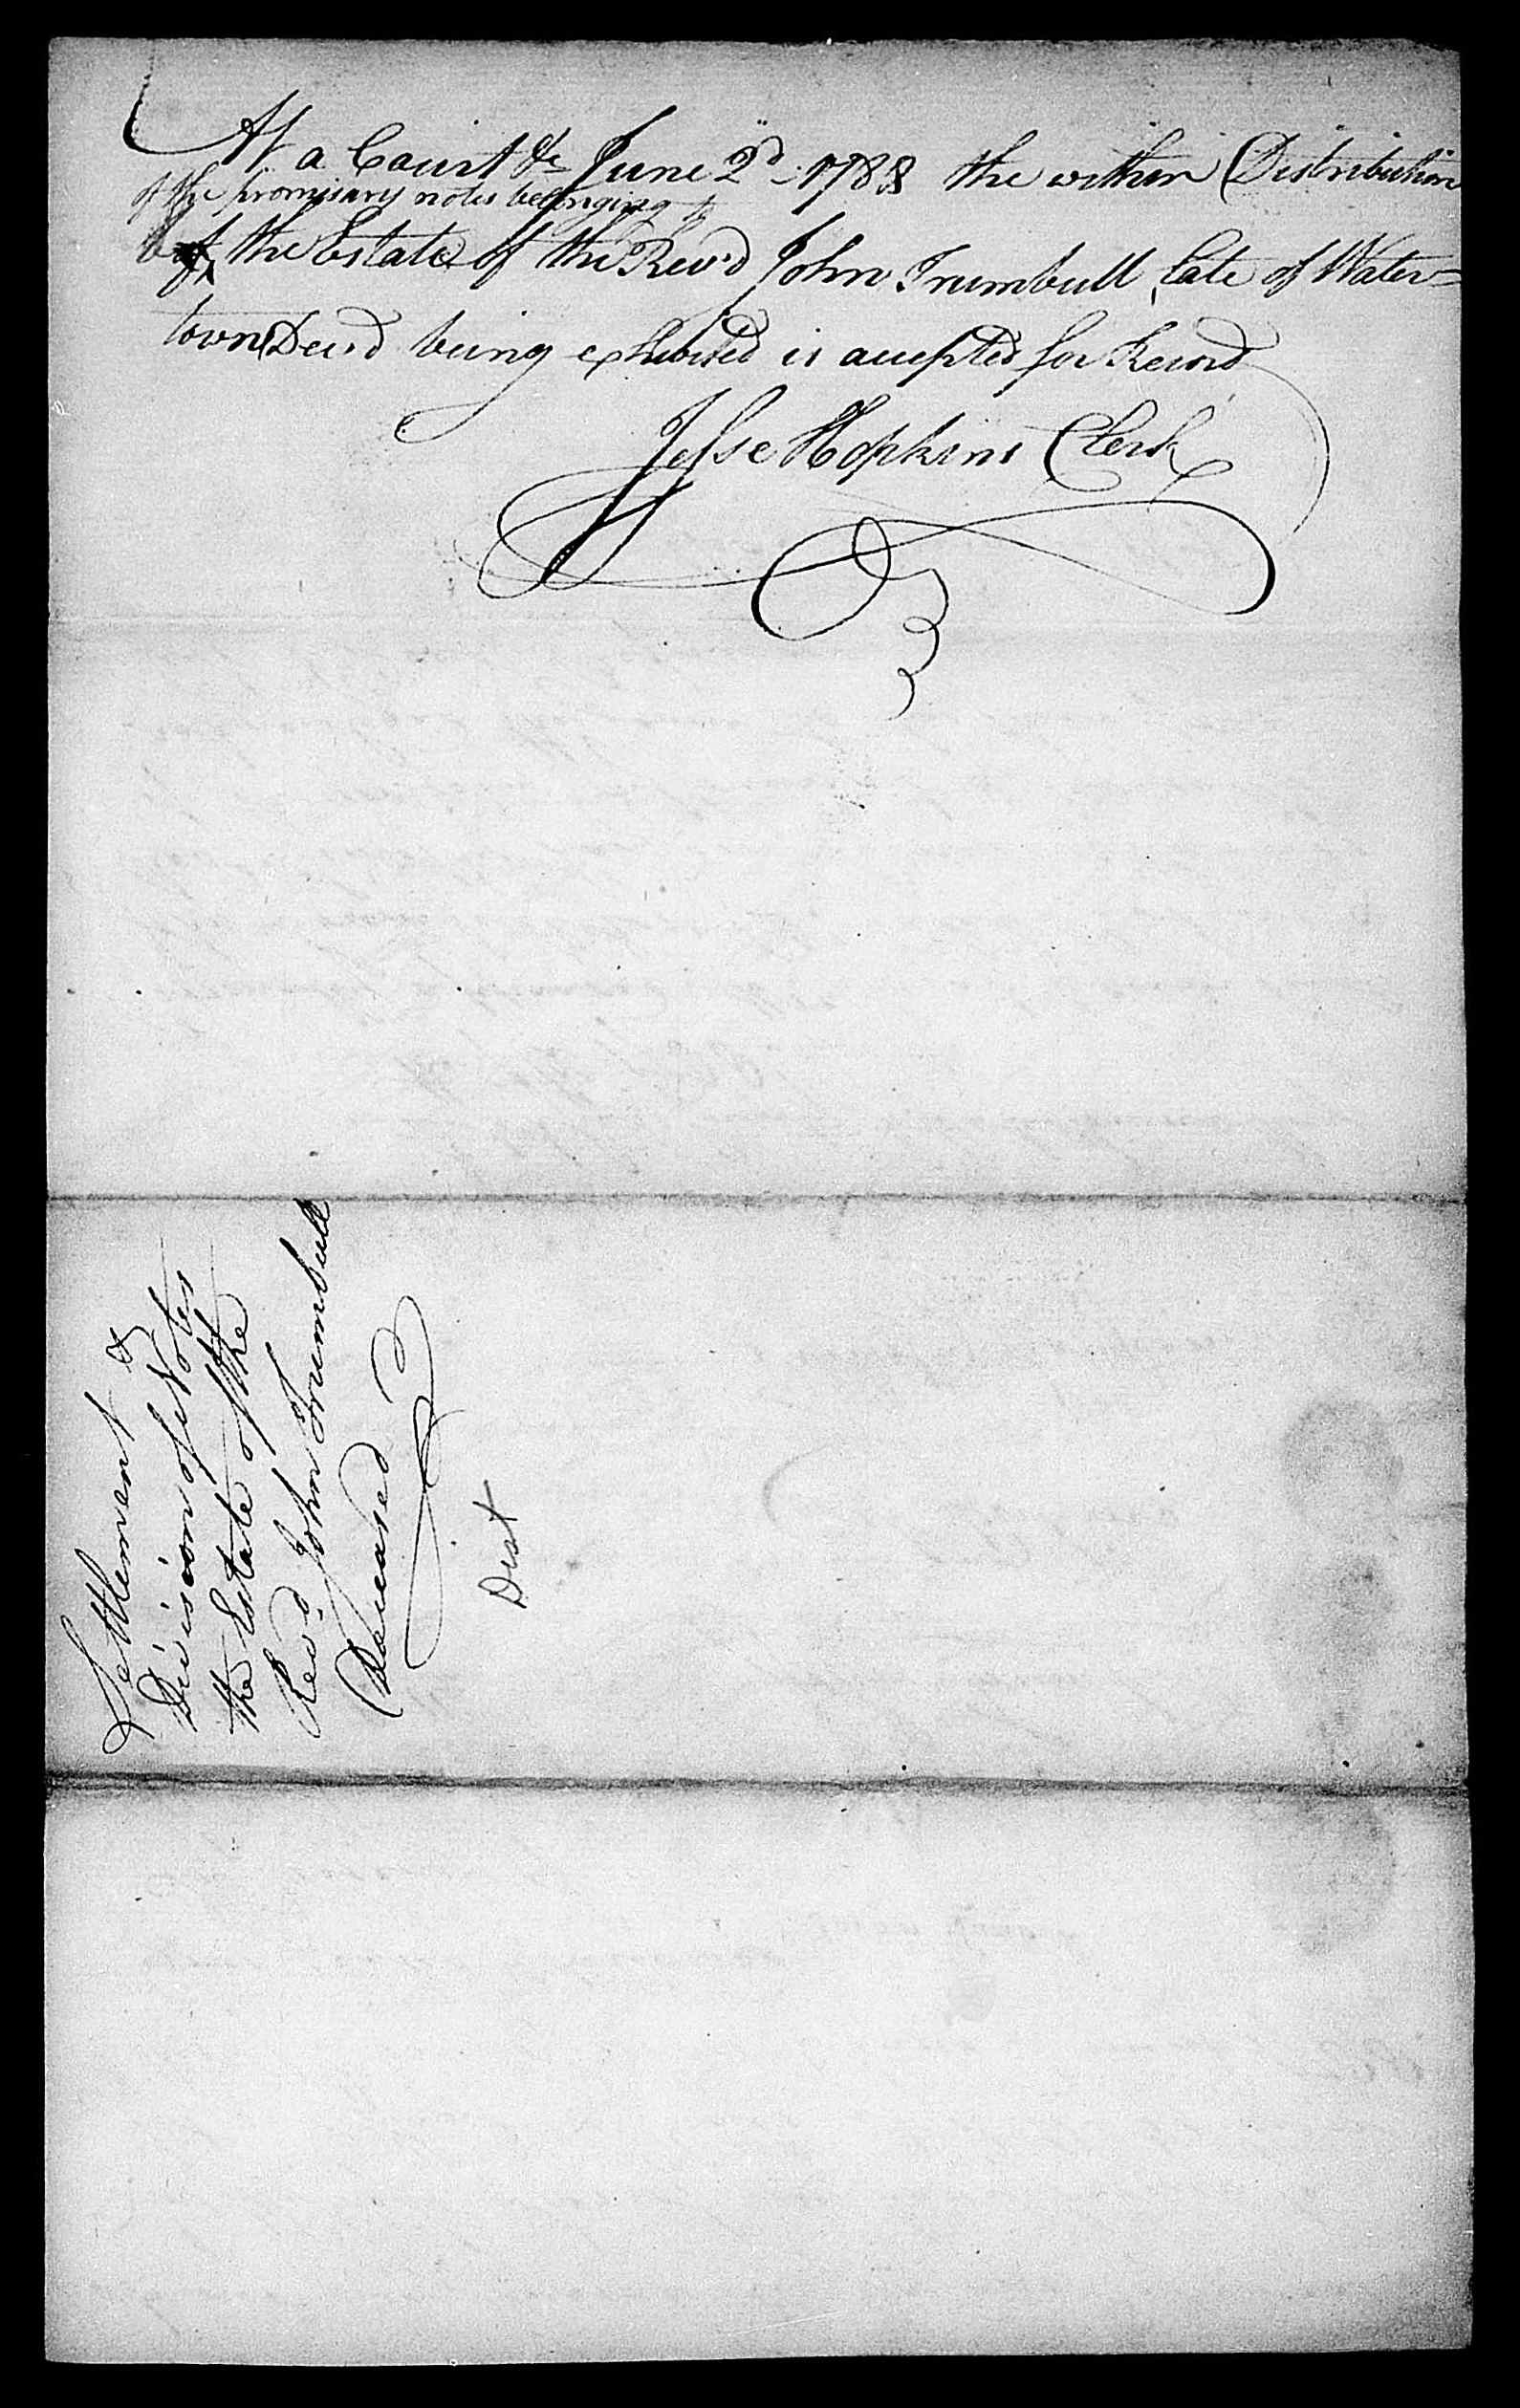 At a Court &c June 2d 1788 the within Distribution
of the promissary notes belonging to
of the Estate of the Revd John Trumbull late of Water=
town Decd being exhibited is accepted for Record
Jesse Hopkins Clerk
Settlement &
Division of Notes
the Estate of the
Revd John Trumbull
Deceased
Dist